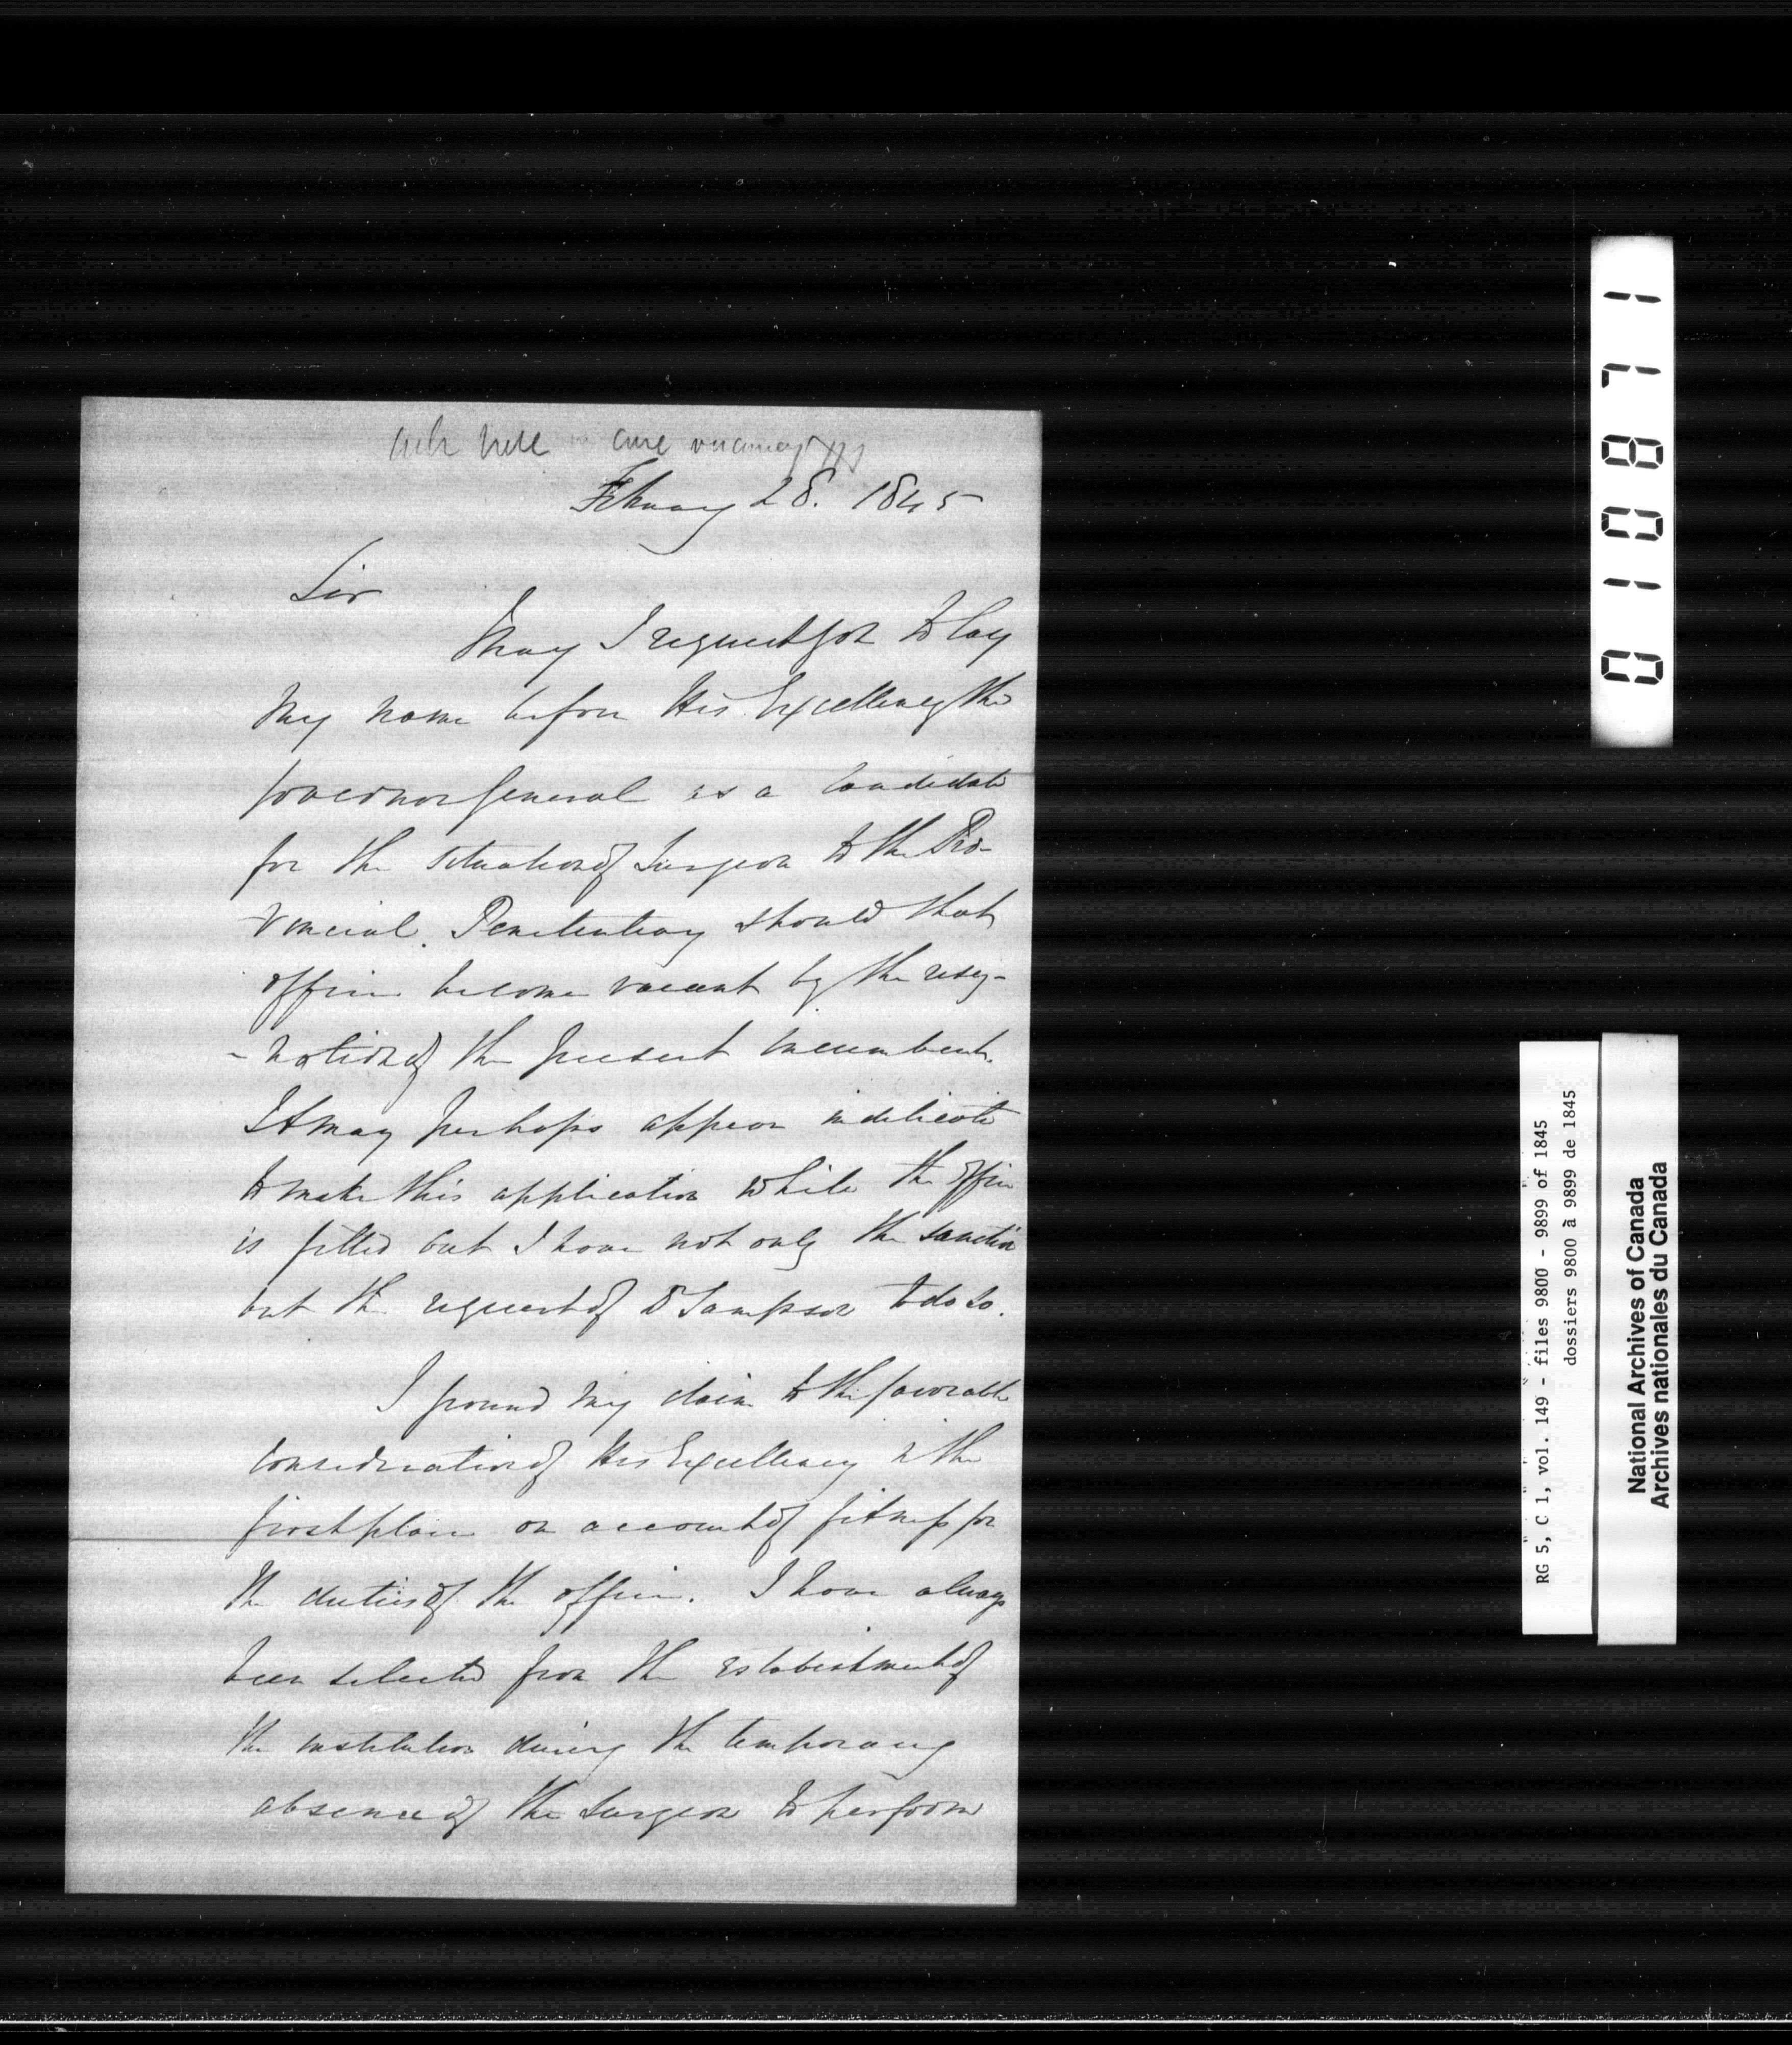 February 28. 1845
Sir
May I request you to lay
my name before His Excellency the
Governor General as a Candidate
for the situation of Surgeon to the Pro-
vincial Penitentiary should that
office become vacant by the resig-
-nation of the present incumbent.
It may perhaps appear indelicate
to make this application while the office
is filled but I have not only the sanction
but the request of Dr Sampson to do so.
I ground my claim to the favorable
consideration of His Excellency in the
first place on account of fitness for
the duties of the office. I have always
been selected from the establishment of
the institution during the temporary
absence of the Surgeon to perform
010871
RG 5, C 1, vol. 149 - files 9800 - 9899 of 1845
dossiers 9800 à 9899 de 1845
National Archives of Canada
Archives nationales du Canada